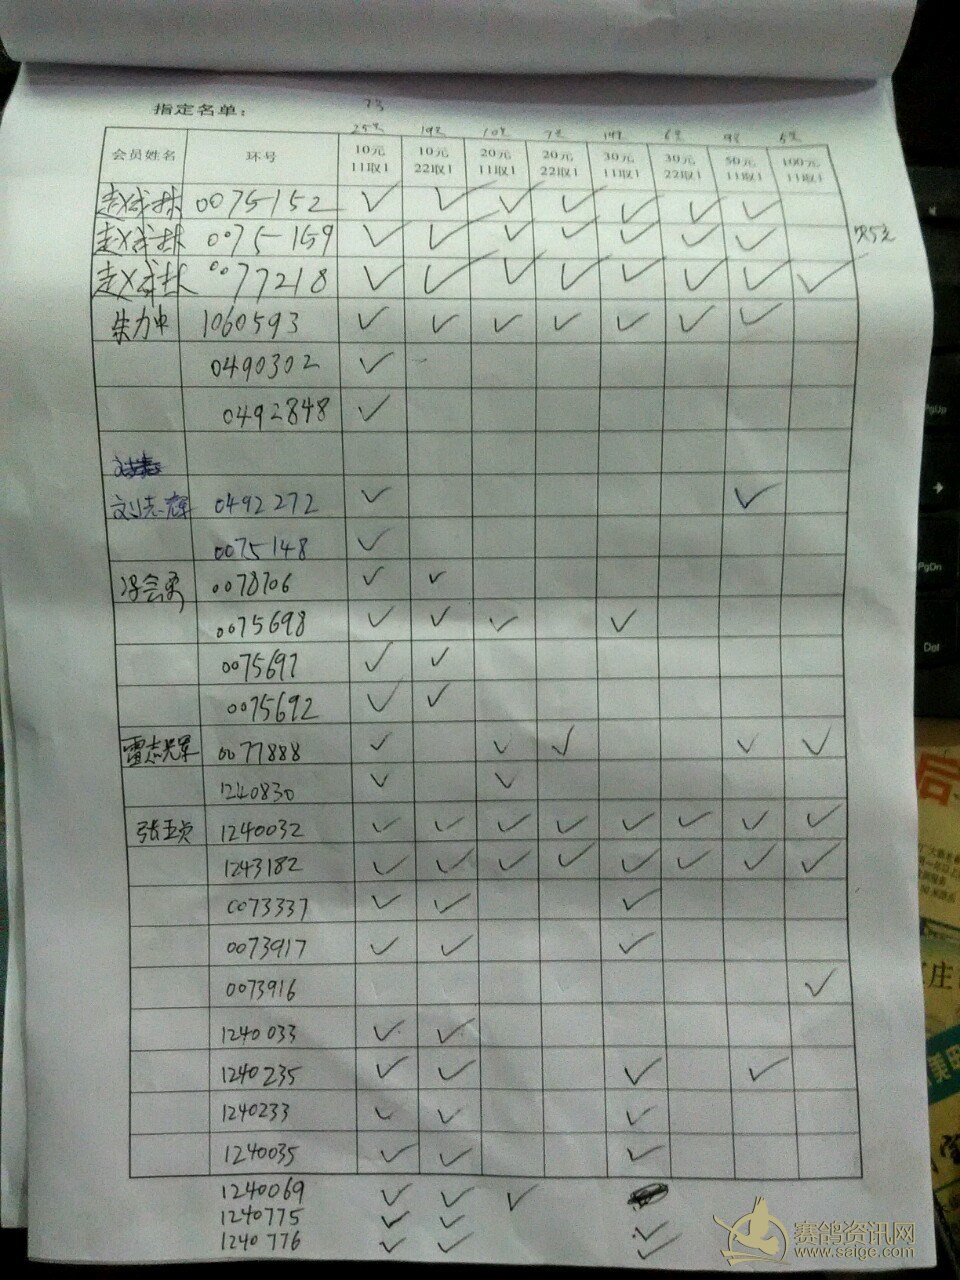 指定名单：
会员姓名 环号 10元 11取1 10元 22取1 20元 11取1 20元 22取1 30元 11取1 30元 22取1 50元 11取1 100元 11取1
0075152 ✓ ✓ ✓ ✓ ✓ ✓ ✓
0075159 ✓ ✓ ✓ ✓ ✓ ✓ ✓
0077218 ✓ ✓ ✓ ✓ ✓ ✓ ✓ ✓
朱力申 1060593 ✓ ✓ ✓ ✓ ✓ ✓ ✓
0490302 ✓
0492848 ✓
刘志辉 0492272 ✓ ✓
0075148 ✓
0078706 ✓ ✓
0075698 ✓ ✓ ✓ ✓
0075697 ✓ ✓
0075692 ✓ ✓
雷志军 0077888 ✓ ✓ ✓ ✓ ✓
1240830 ✓ ✓
张玉贞 1240032 ✓ ✓ ✓ ✓ ✓ ✓ ✓ ✓
1243182 ✓ ✓ ✓ ✓ ✓ ✓ ✓ ✓
0073337 ✓ ✓ ✓
0073917 ✓ ✓ ✓
0073916 ✓
1240033 ✓ ✓
1240235 ✓ ✓ ✓ ✓
1240233 ✓ ✓ ✓
1240035 ✓ ✓ ✓
1240069 ✓ ✓ ✓
1240775 ✓ ✓ ✓
1240776 ✓ ✓ ✓
PgUp
PgDn
Del
后
庄
美
赛鸽资讯网
www.saigc.com